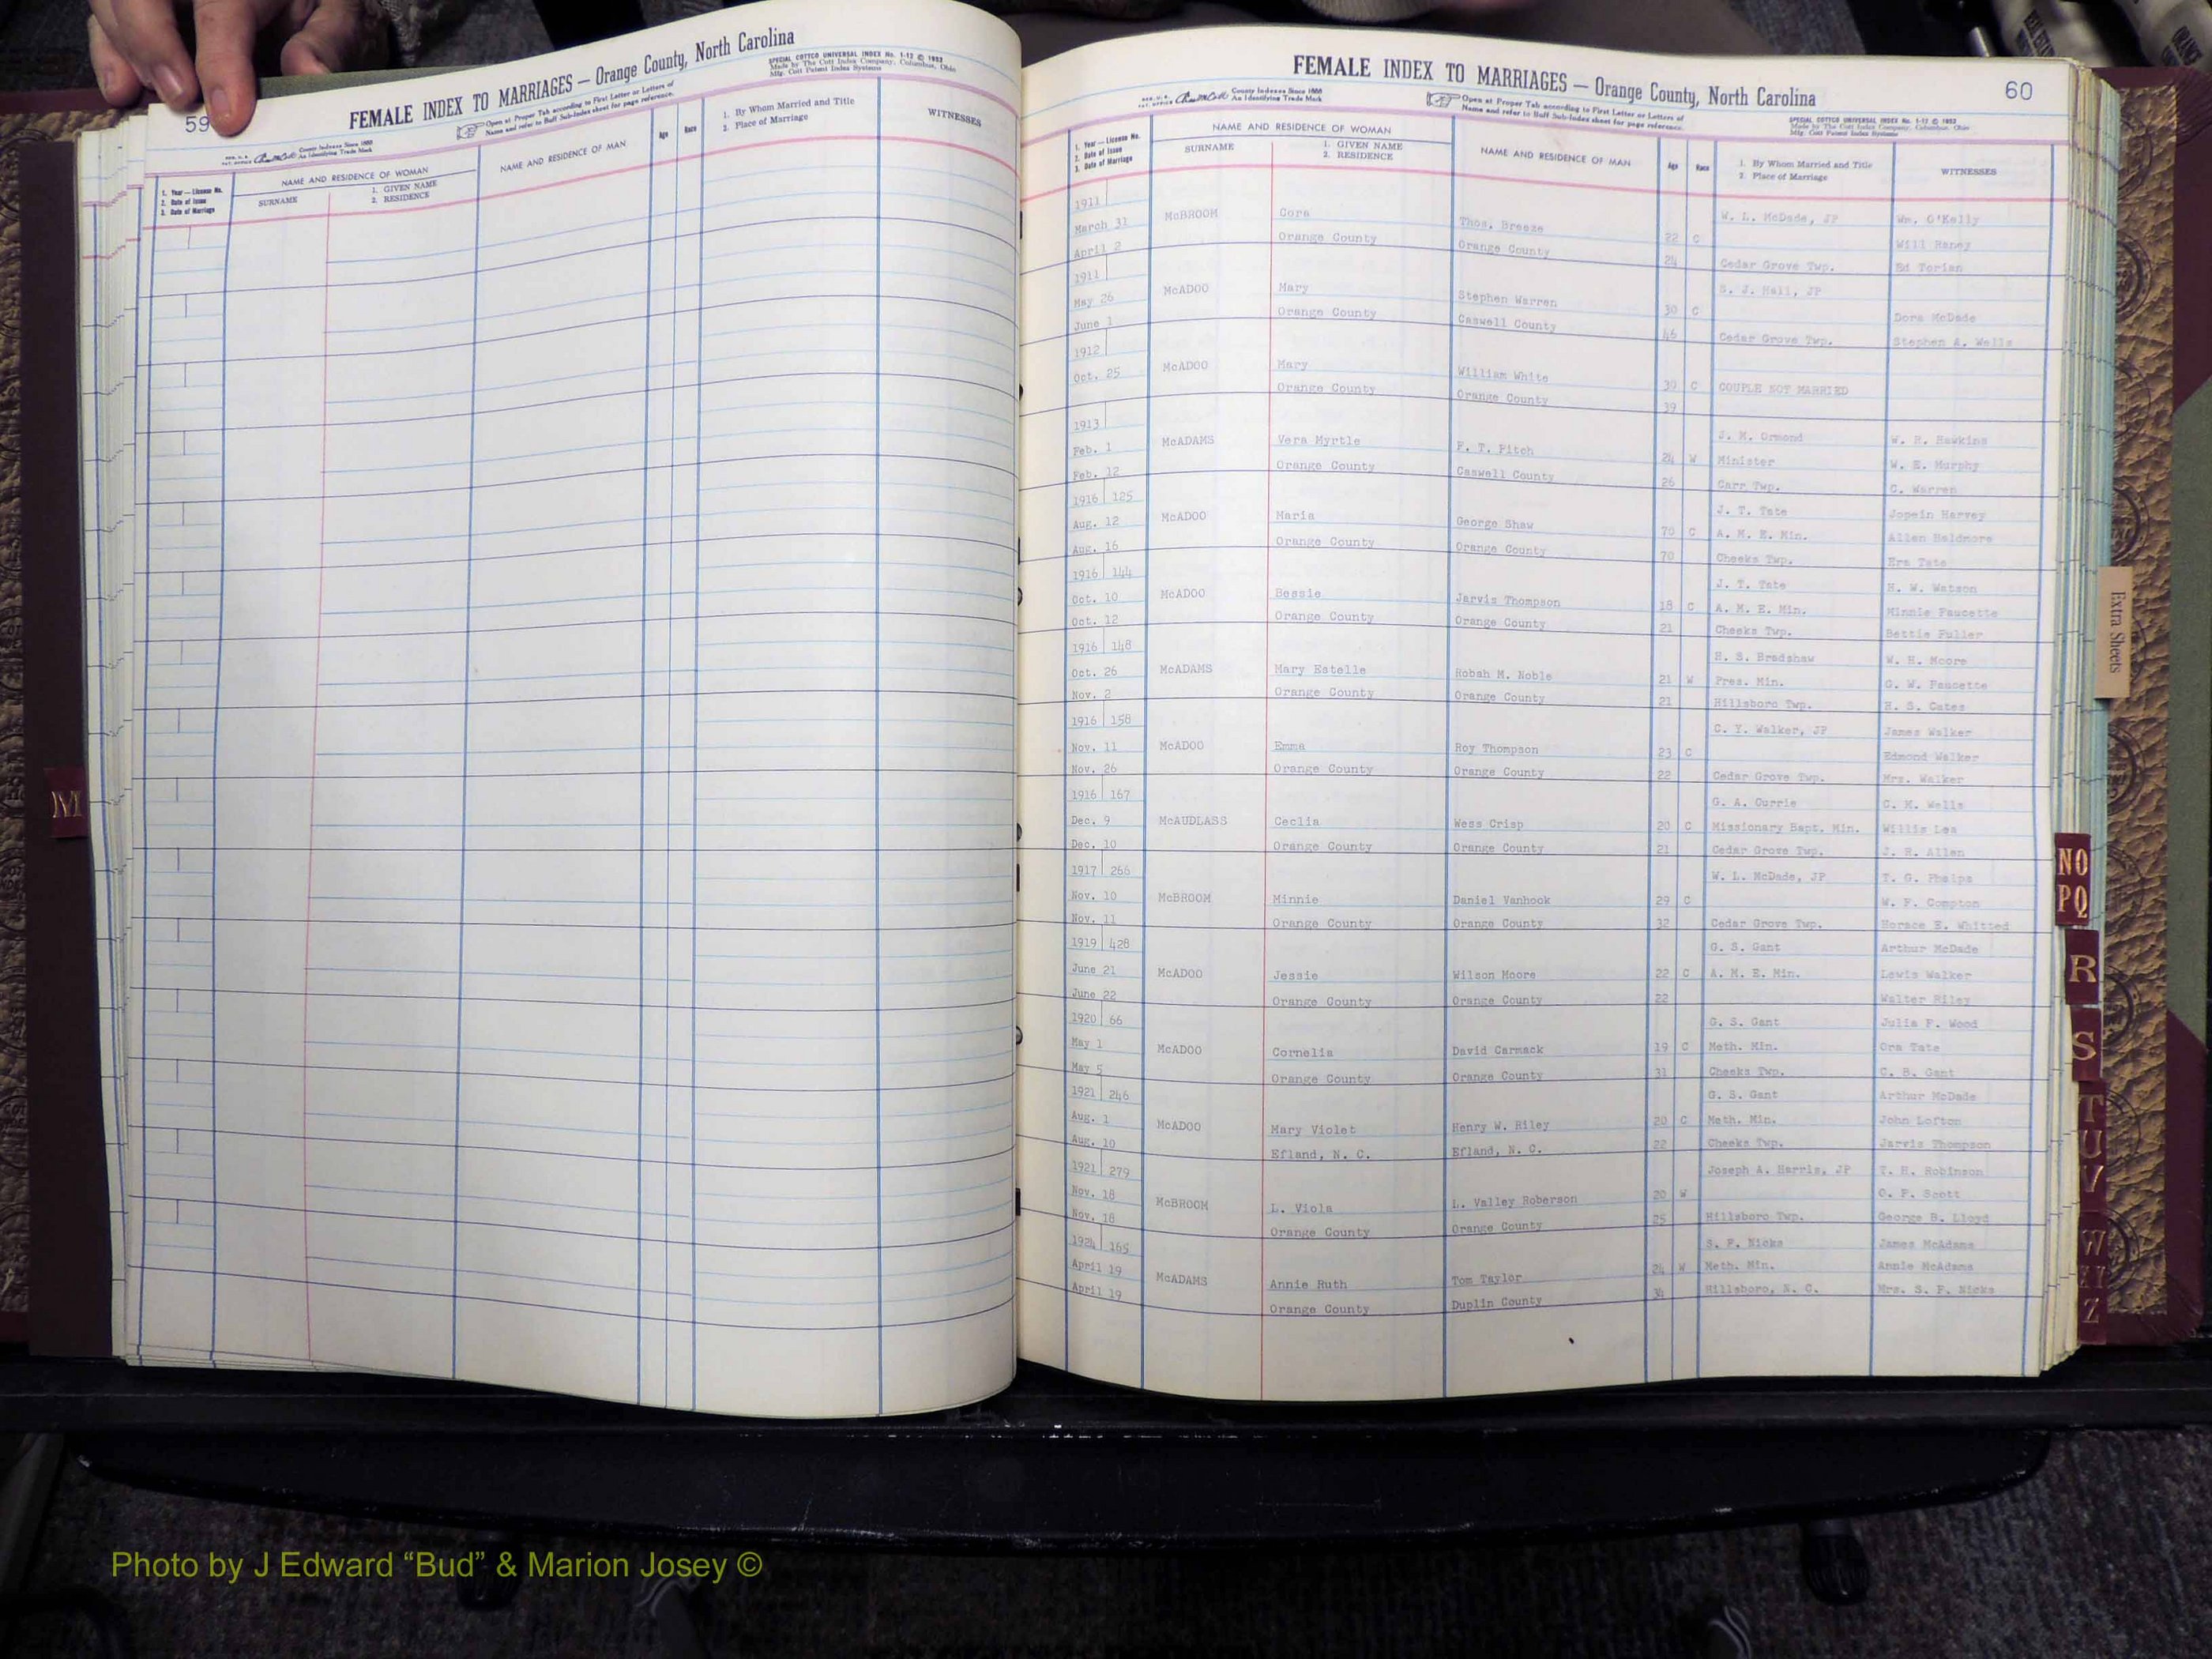 59
FEMALE INDEX TO MARRIAGES — Orange County, North Carolina
SPECIAL COTTCO UNIVERSAL INDEX No. 1-12 © 1952
Made by The Cott Index Company, Columbus, Ohio
Mfg. Cott Patent Index Systems
County Indexes Since 1888
An Identifying Trade Mark
Open at Proper Tab according to First Letter or Letters of
Name and refer to Buff Sub-Index sheet for page reference.
1. Year — License No.
2. Date of Issue
3. Date of Marriage
NAME AND RESIDENCE OF WOMAN
SURNAME
1. GIVEN NAME
2. RESIDENCE
NAME AND RESIDENCE OF MAN
Age
Race
1. By Whom Married and Title
2. Place of Marriage
WITNESSES
FEMALE INDEX TO MARRIAGES — Orange County, North Carolina
60
County Indexes Since 1888
An Identifying Trade Mark
Open at Proper Tab according to First Letter or Letters of
Name and refer to Buff Sub-Index sheet for page reference.
SPECIAL COTTCO UNIVERSAL INDEX No. 1-12 © 1952
Made by The Cott Index Company, Columbus, Ohio
Mfg. Cott Patent Index Systems
1. Year — License No.
2. Date of Issue
3. Date of Marriage
NAME AND RESIDENCE OF WOMAN
SURNAME
1. GIVEN NAME
2. RESIDENCE
NAME AND RESIDENCE OF MAN
Age
Race
1. By Whom Married and Title
2. Place of Marriage
WITNESSES
1911 W. L. McDade, JP Wm. O'Kelly
March 31 McBROOM Cora Thos. Breeze 22 C Will Haney
April 2 Orange County Orange County 24 Cedar Grove Twp. Ed Torian
1911 S. J. Hall, JP
May 26 McADOO Mary Stephen Warren 30 C Dora McDade
June 1 Orange County Caswell County 46 Cedar Grove Twp. Stephen A. Wells
1912
Oct. 25 McADOO Mary William White 30 C COUPLE NOT MARRIED
Orange County Orange County 39
1913 J. M. Ormond W. R. Hawkins
Feb. 1 McADAMS Vera Myrtle F. T. Fitch 24 W Minister W. E. Murphy
Feb. 12 Orange County Caswell County 26 Carr Twp. C. Warren
1916 125 J. T. Tate Jopein Harvey
Aug. 12 McADOO Maria George Shaw 70 C A. M. E. Min. Allen Haldmore
Aug. 16 Orange County Orange County 70 Cheeks Twp. Era Tate
1916 144 J. T. Tate H. W. Watson
Oct. 10 McADOO Bessie Jarvis Thompson 18 C A. M. E. Min. Minnie Faucette
Oct. 12 Orange County Orange County 21 Cheeks Twp. Bettie Fuller
1916 148 H. S. Bradshaw W. H. Moore
Oct. 26 McADAMS Mary Estelle Robah M. Noble 21 W Pres. Min. G. W. Faucette
Nov. 2 Orange County Orange County 21 Hillsboro Twp. H. S. Cates
1916 158 C. Y. Walker, JP James Walker
Nov. 11 McADOO Emma Roy Thompson 23 C Edmond Walker
Nov. 26 Orange County Orange County 22 Cedar Grove Twp. Mrs. Walker
1916 167 G. A. Currie C. M. Wells
Dec. 9 McAUDLASS Ceclia Wess Crisp 20 C Missionary Bapt. Min. Willis Lea
Dec. 10 Orange County Orange County 21 Cedar Grove Twp. J. H. Allen
1917 266 W. L. McDade, JP T. G. Phelps
Nov. 10 McBROOM Minnie Daniel Vanhook 29 C W. F. Compton
Nov. 11 Orange County Orange County 32 Cedar Grove Twp. Horace E. Whitted
1919 428 G. S. Gant Arthur McDade
June 21 McADOO Jessie Wilson Moore 22 C A. M. E. Min. Lewis Walker
June 22 Orange County Orange County 22 Walter Riley
1920 66 G. S. Gant Julia F. Wood
May 1 McADOO Cornelia David Carmack 19 C Meth. Min. Ora Tate
May 5 Orange County Orange County 31 Cheeks Twp. C. B. Gant
1921 246 G. S. Gant Arthur McDade
Aug. 1 McADOO Mary Violet Henry W. Riley 20 C Meth. Min. John Lofton
Aug. 10 Efland, N. C. Efland, N. C. 22 Cheeks Twp. Jarvis Thompson
1921 279 Joseph A. Harris, JP T. H. Robinson
Nov. 18 McBROOM L. Viola L. Valley Roberson 20 W O. F. Scott
Nov. 18 Orange County Orange County 25 Hillsboro Twp. George B. Lloyd
1924 165 S. F. Nicks James McAdams
April 19 McADAMS Annie Ruth Tom Taylor 24 W Meth. Min. Annie McAdams
April 19 Orange County Duplin County 34 Hillsboro, N. C. Mrs. S. F. Nicks
M
Extra Sheets
NO
PQ
R
S
T
U
V
W
Z
Photo by J Edward “Bud” & Marion Josey ©